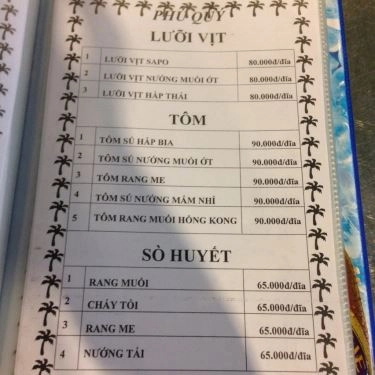 PHÚ QUÝ
LƯỠI VỊT
1 LƯỠI VỊT SAPO 80.000đ/đĩa
2 LƯỠI VỊT NƯỚNG MUỐI ỚT 80.000đ/đĩa
3 LƯỠI VỊT HẤP THÁI 80.000đ/đĩa
TÔM
1 TÔM SÚ HẤP BIA 90.000đ/đĩa
2 TÔM SÚ NƯỚNG MUỐI ỚT 90.000đ/đĩa
3 TÔM RANG ME 90.000đ/đĩa
4 TÔM SÚ NƯỚNG MẮM NHỈ 90.000đ/đĩa
5 TÔM RANG MUỐI HỒNG KONG 90.000đ/đĩa
SÒ HUYẾT
1 RANG MUỐI 65.000đ/đĩa
2 CHÁY TỎI 65.000đ/đĩa
3 RANG ME 65.000đ/đĩa
4 NƯỚNG TÁI 65.000đ/đĩa